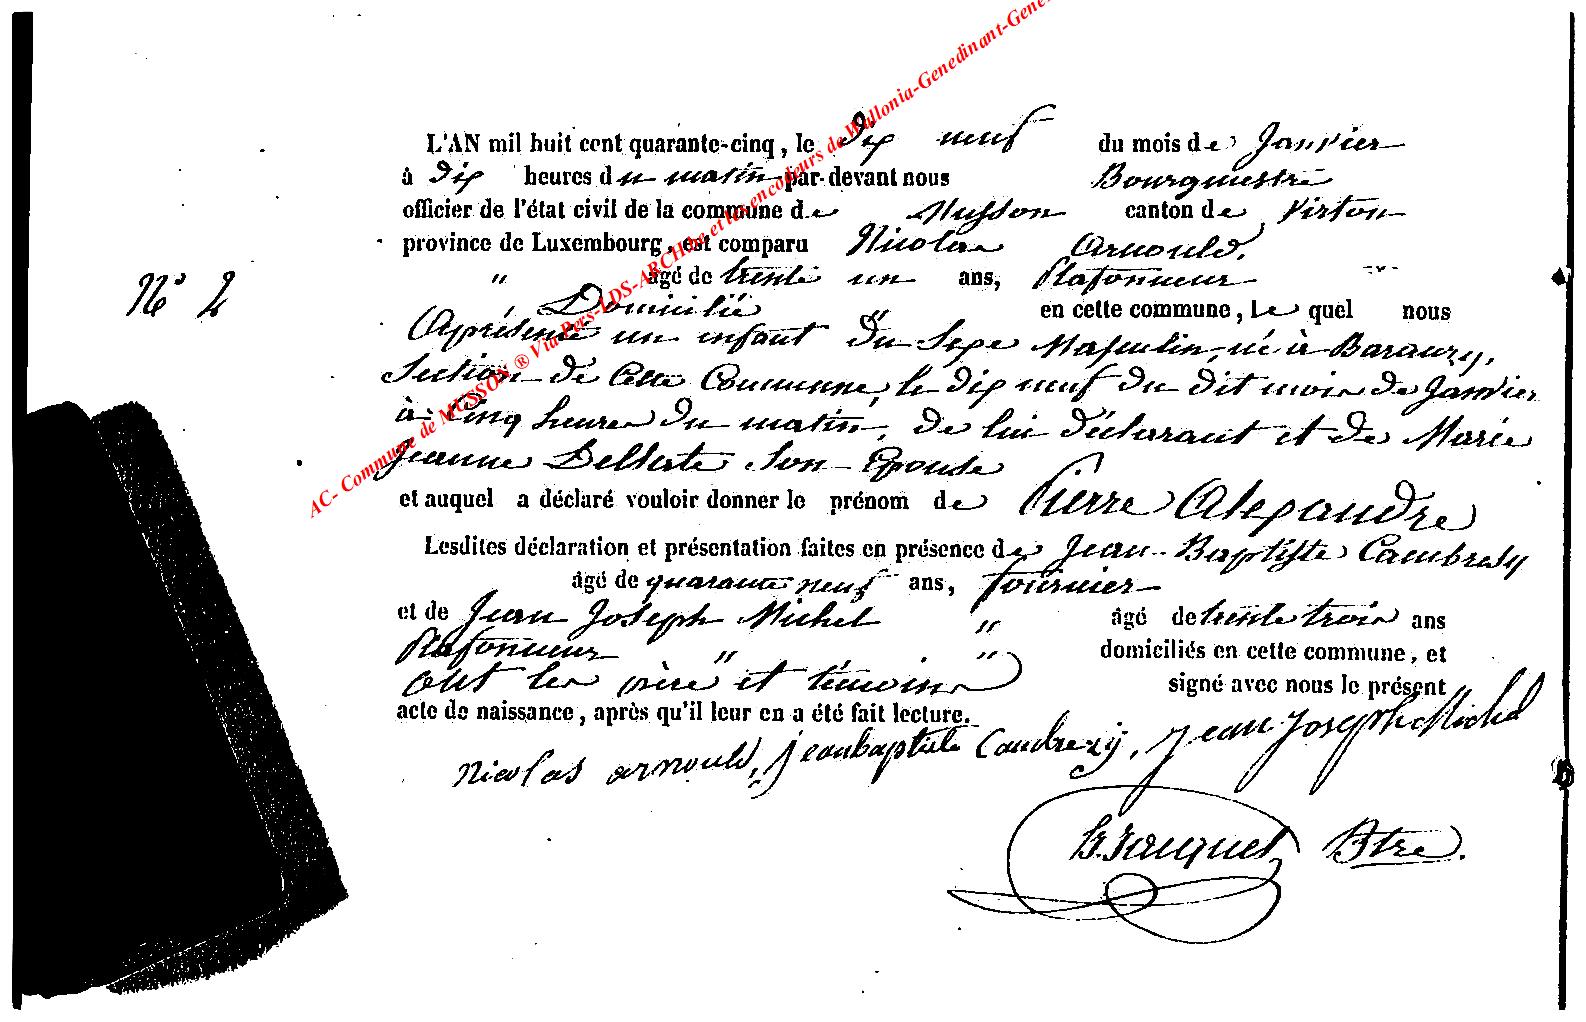 AC- Commune de MUSSON ® Via Pers-LDS-ARCHbe et les encodeurs de Wallonia-Genedinant-Gene
L'AN mil huit cent quarante-cinq, le Dix neuf du mois de Janvier
à Dix heures du matin par-devant nous Bourgmestre
officier de l'état civil de la commune de Musson canton de Virton
province de Luxembourg, est comparu Nicolas Arnould,
N° 2
" âgé de trente un ans, Plafonneur
Domicilié " en cette commune, le quel nous
a présenté un enfant du Sexe Masculin, né à Baranzy,
Section de Cette Commune, le dix neuf du dit mois de Janvier
à Cinq heures du matin, de lui déclarant et de Marie
Jeanne Son Epouse
et auquel a déclaré vouloir donner le prénom de Pierre Alexandre
Lesdites déclaration et présentation faites en présence de Jean Baptiste Cambresy
âgé de quarante neuf ans,
et de Jean Joseph Michel " âgé de trente trois ans
Plafonneur " " domiciliés en cette commune, et
ont les père et témoins signé avec nous le présent
acte de naissance, après qu'il leur en a été fait lecture.
Nicolas arnould, jeanbaptiste Jean Joseph Michel
Btre.